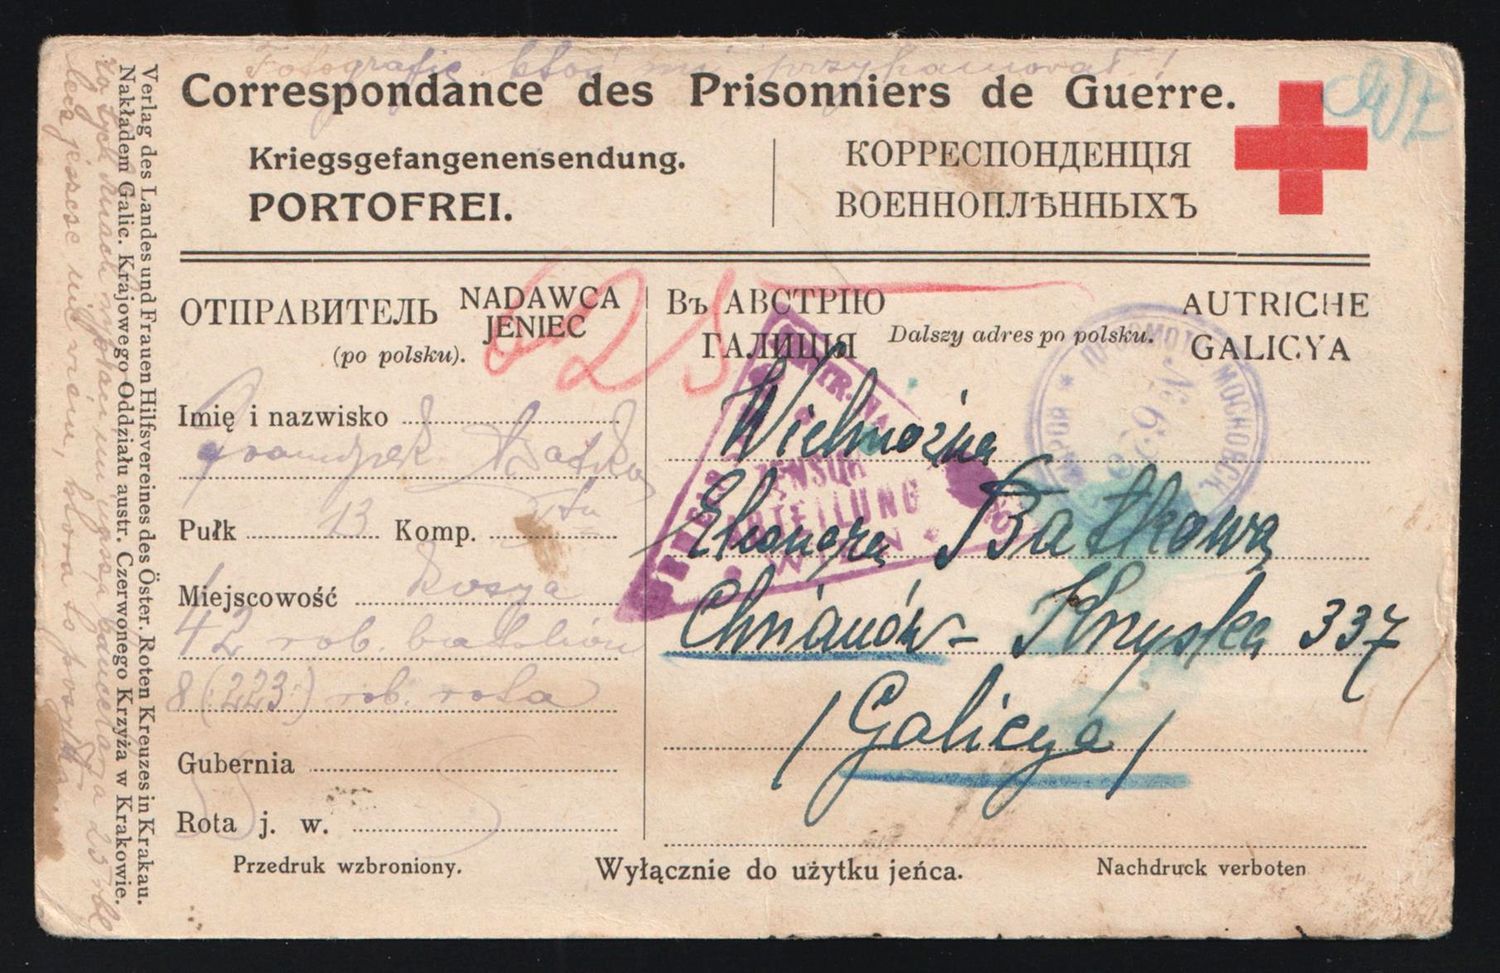 Fotografię ktoś mi przyhamował!
Correspondance des Prisonniers de Guerre.
Kriegsgefangenensendung.
PORTOFREI.
КОРРЕСПОНДЕНЦІЯ
ВОЕННОПЛѢННЫХЪ
ОТПРАВИТЕЛЬ
NADAWCA
JENIEC
(po polsku).
Imię i nazwisko
Pułk 13 Komp.
Miejscowość Rosya
42 rob. batalion
8 (223.) rob. rota
Gubernia
Rota j. w.
Въ АВСТРІЮ
ГАЛИЦІЯ
Dalszy adres po polsku.
AUTRICHE
GALICYA
Wielmożna
Eleonora Batkowa
Chrzanów - Krzyska 337
/Galicya/
625
ZENSUR
ABTEILUNG
WIEN
Przedruk wzbroniony.
Wyłącznie do użytku jeńca.
Nachdruck verboten
Verlag des Landes und Frauen Hilfsvereines des Öster. Roten Kreuzes in Krakau.
Nakładem Galic. Krajowego Oddziału austr. Czerwonego Krzyża w Krakowie.